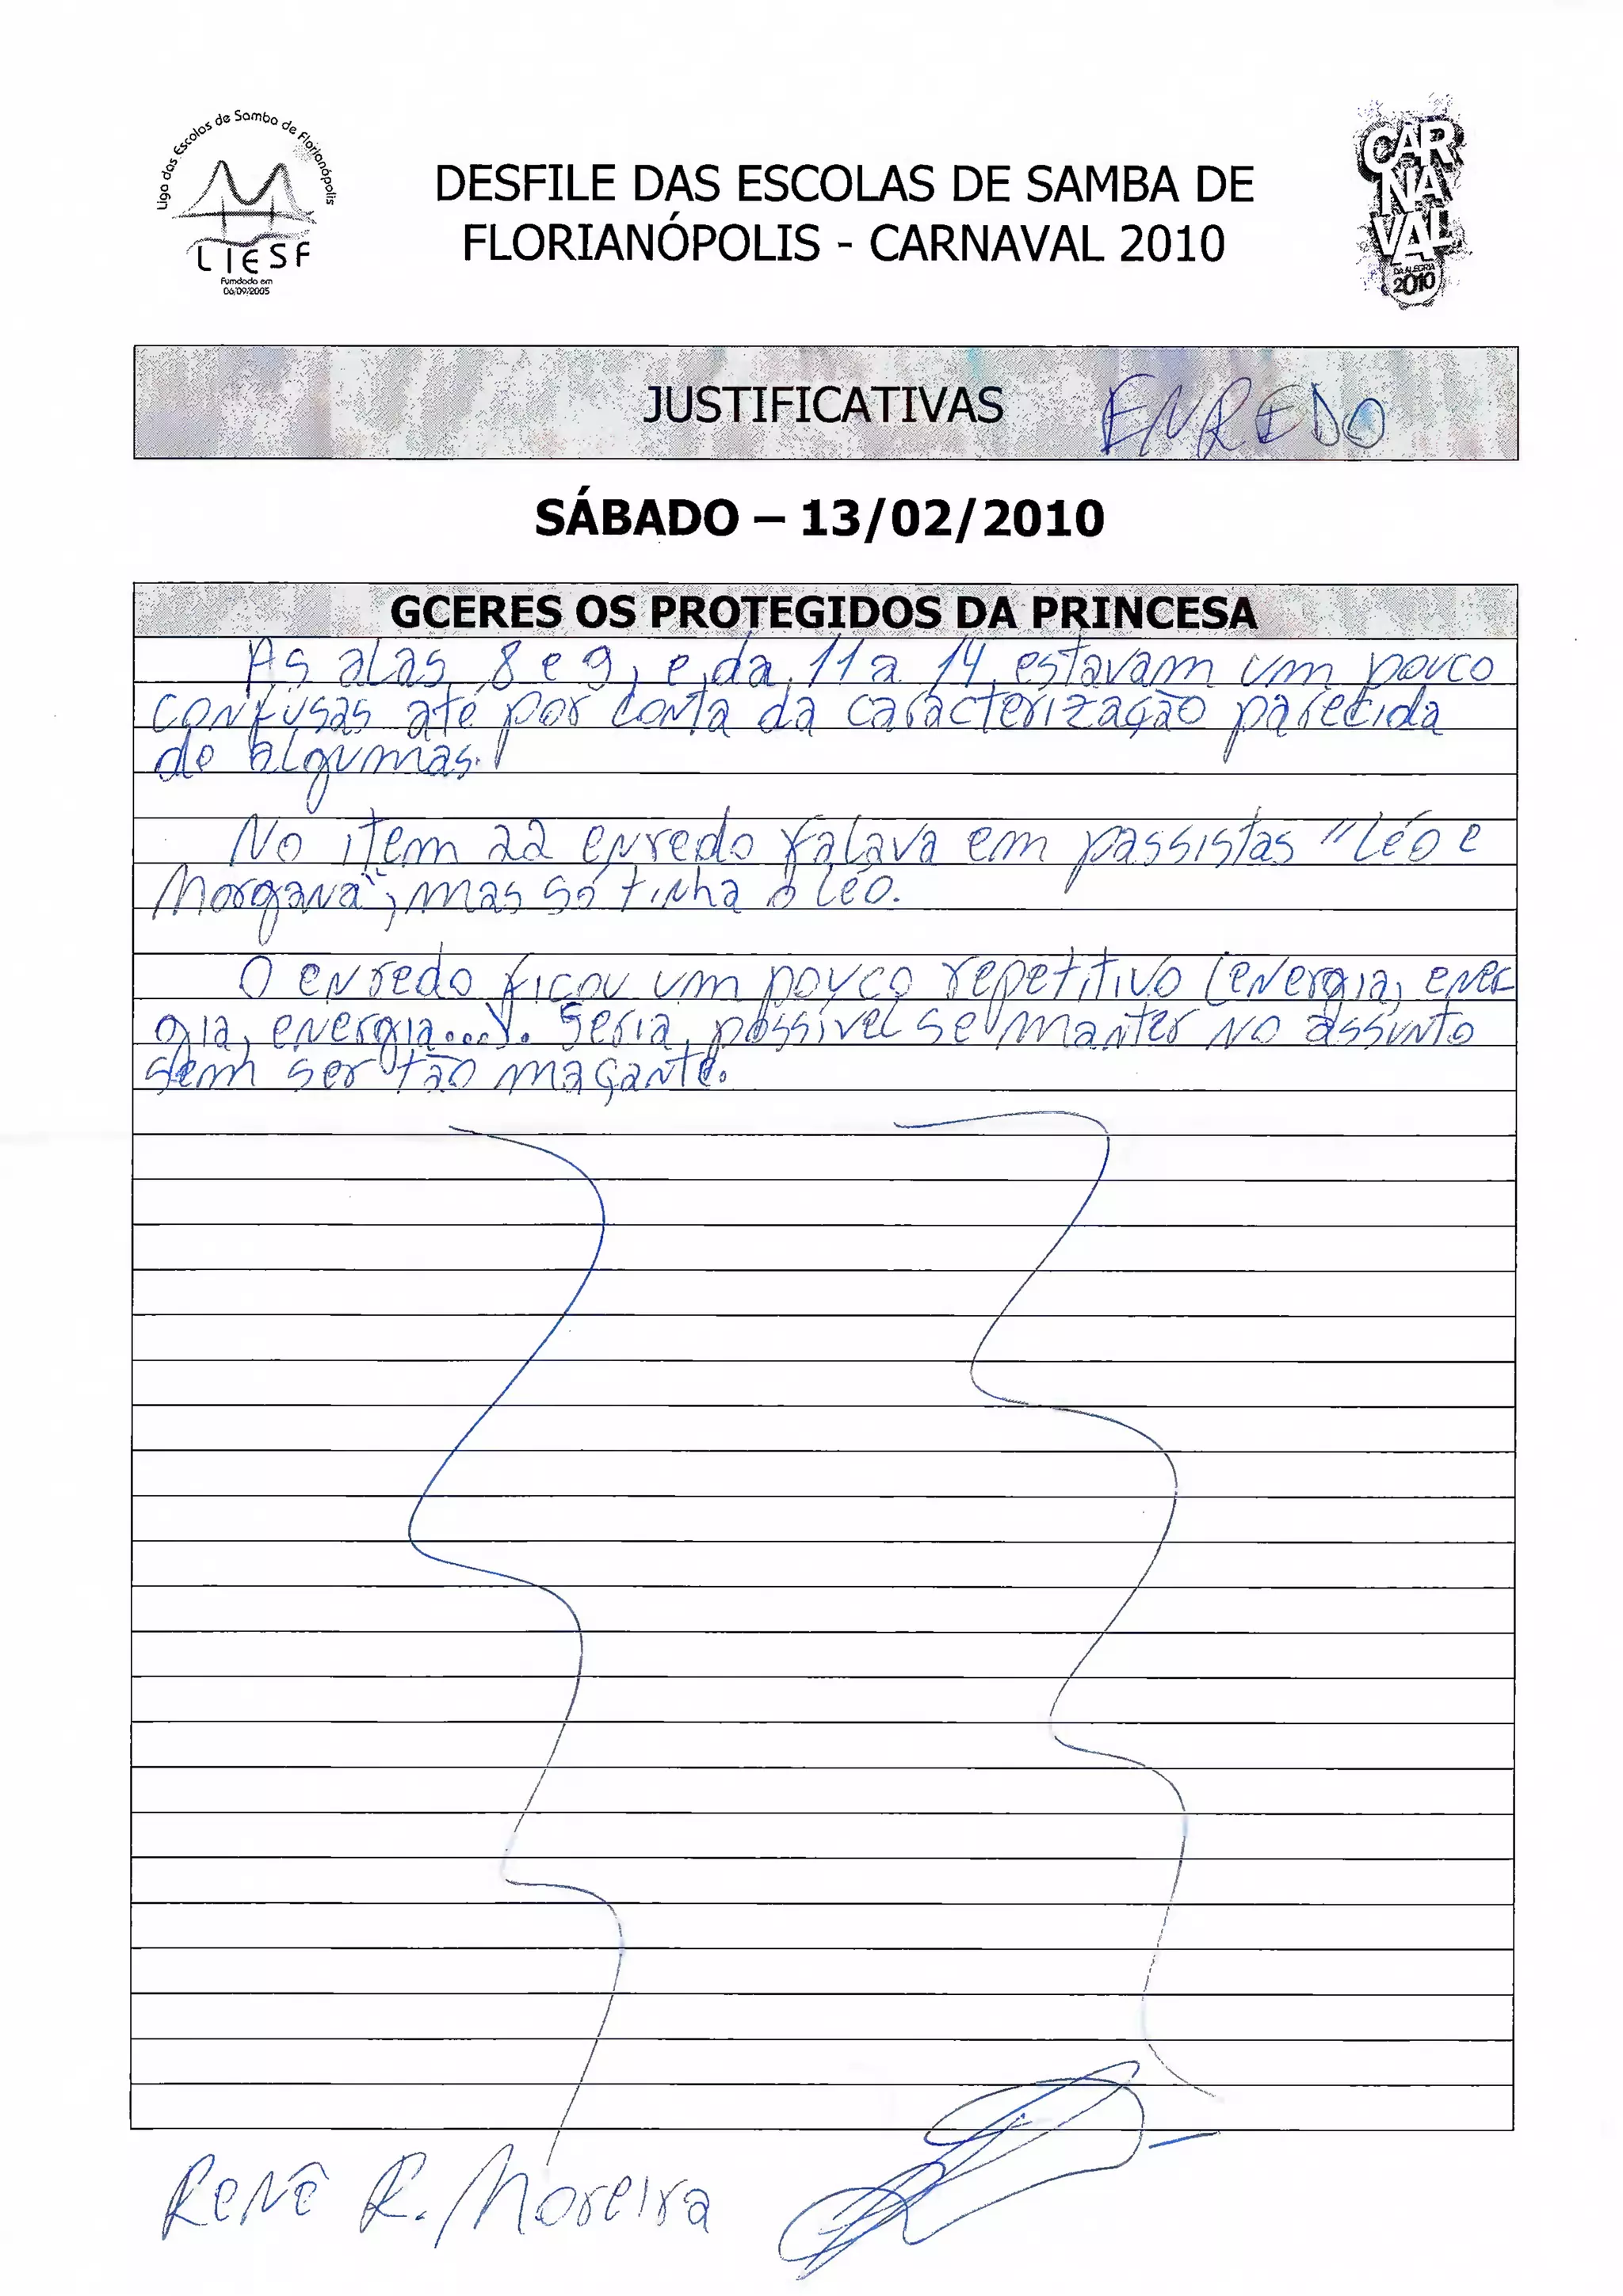 Liga das Escolas de Samba de Florianópolis
LIESF
Fundada em
06/09/2005
DESFILE DAS ESCOLAS DE SAMBA DE
FLORIANÓPOLIS - CARNAVAL 2010
CAR
NA
VAL
DA ALEGRIA
2010
JUSTIFICATIVAS ENREDO
SÁBADO – 13/02/2010
GCERES OS PROTEGIDOS DA PRINCESA
As alas 8 e 9, e da 11 a 14 estavam um pouco
confusas até por conta da caracterização parecida
de algumas.
No item 22 enredo falava em passistas "Léo e
Morgana", mas só tinha o Léo.
O enredo ficou um pouco repetitivo (energia, ener
gia, energia...). Seria possível se manter no assunto
sem ser tão maçante.
Renê R. Moreira